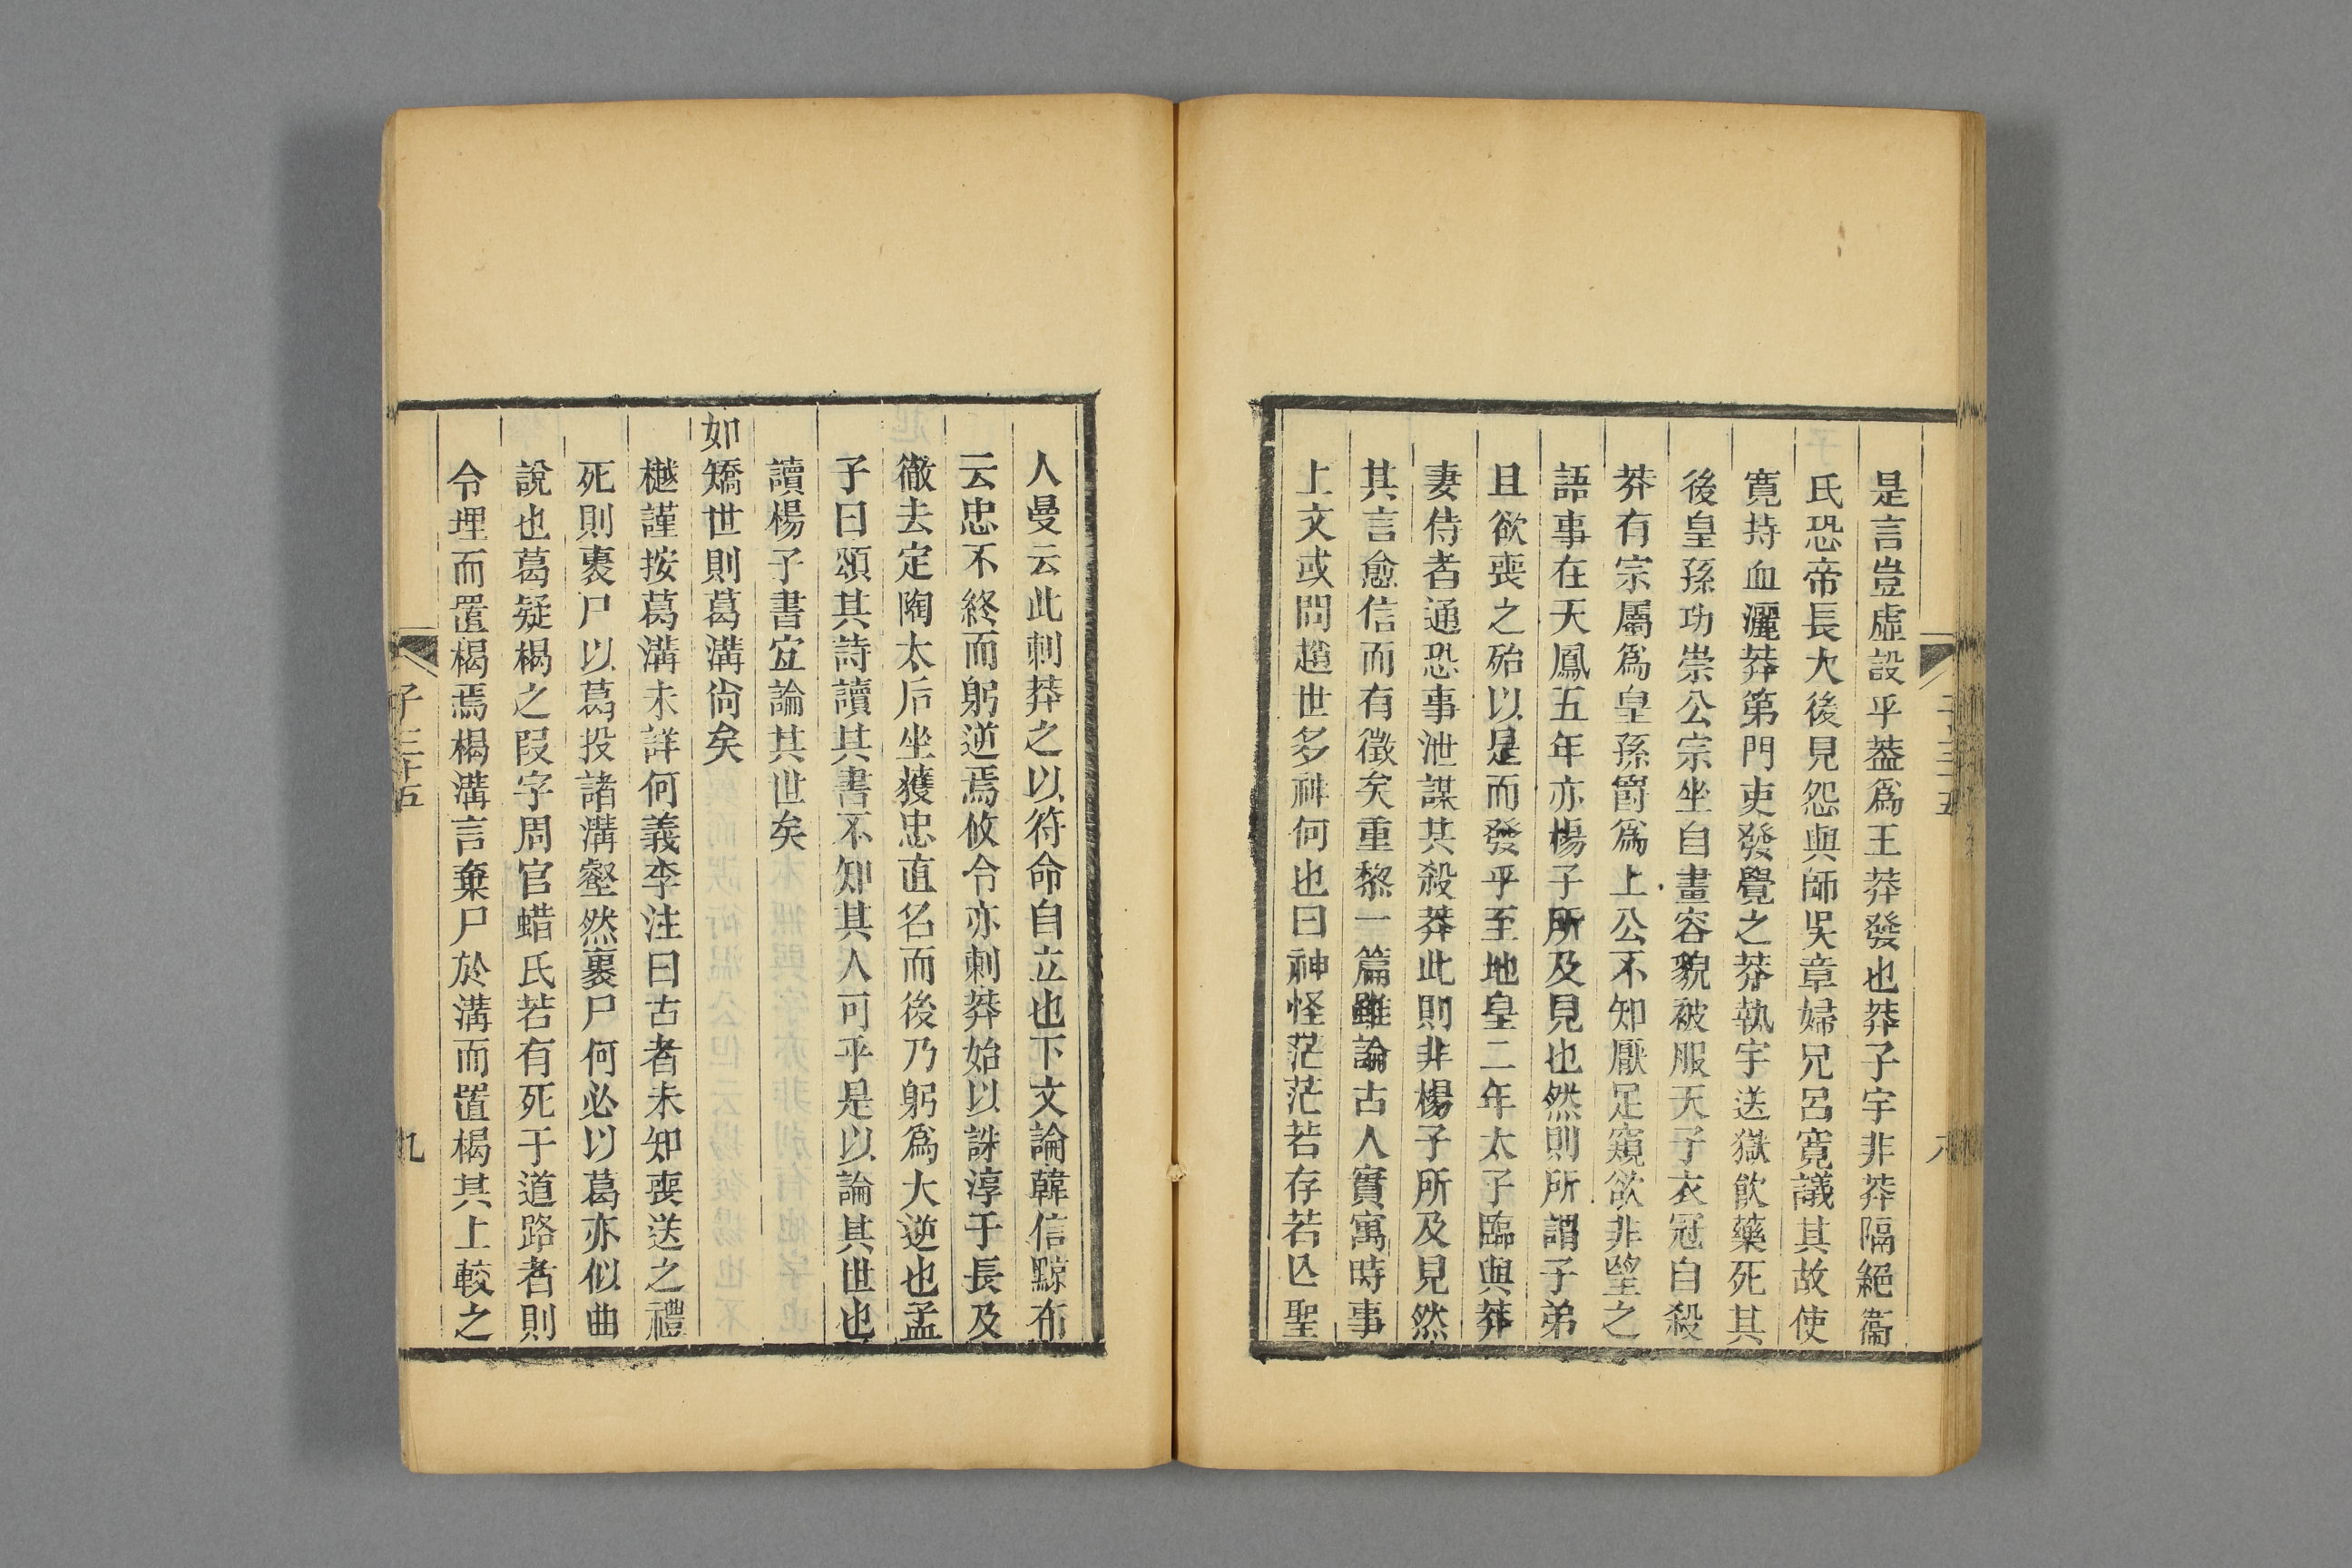 是言豈虛設乎葢爲王莽發也莽子宇非莽隔絕衞
氏恐帝長大後見怨與師吳章婦兄呂寬議其故使
寬持血灑莽第門吏發覺之莽執宇送獄飮藥死其
後皇孫功崇公宗坐自畫容貌被服天子衣冠自殺
莽有宗屬爲皇孫爵爲上公不知厭足窺欲非望之
語事在天鳳五年亦楊子所及見也然則所謂子弟
且欲喪之殆以是而發乎至地皇二年太子臨與莽
妻侍者通恐事泄謀其殺莽此則非楊子所及見然
其言愈信而有徵矣重黎一篇雖論古人實寓時事
上文或問趙世多神何也曰神怪茫茫若存若亾聖
人曼云此刺莽之以符命自立也下文論韓信黥布
云忠不終而躬逆焉攸令亦刺莽始以誅淳于長及
徹去定陶太后坐獲忠直名而後乃躬爲大逆也孟
子曰頌其詩讀其書不知其人可乎是以論其世也
讀楊子書宜論其世矣
如矯世則葛溝尙矣
樾謹按葛溝未詳何義李注曰古者未知喪送之禮
死則裹尸以葛投諸溝壑然裹尸何必以葛亦似曲
說也葛疑楬之叚字周官蜡氏若有死于道路者則
令埋而置楬焉楬溝言棄尸於溝而置楬其上較之
子三十五
九